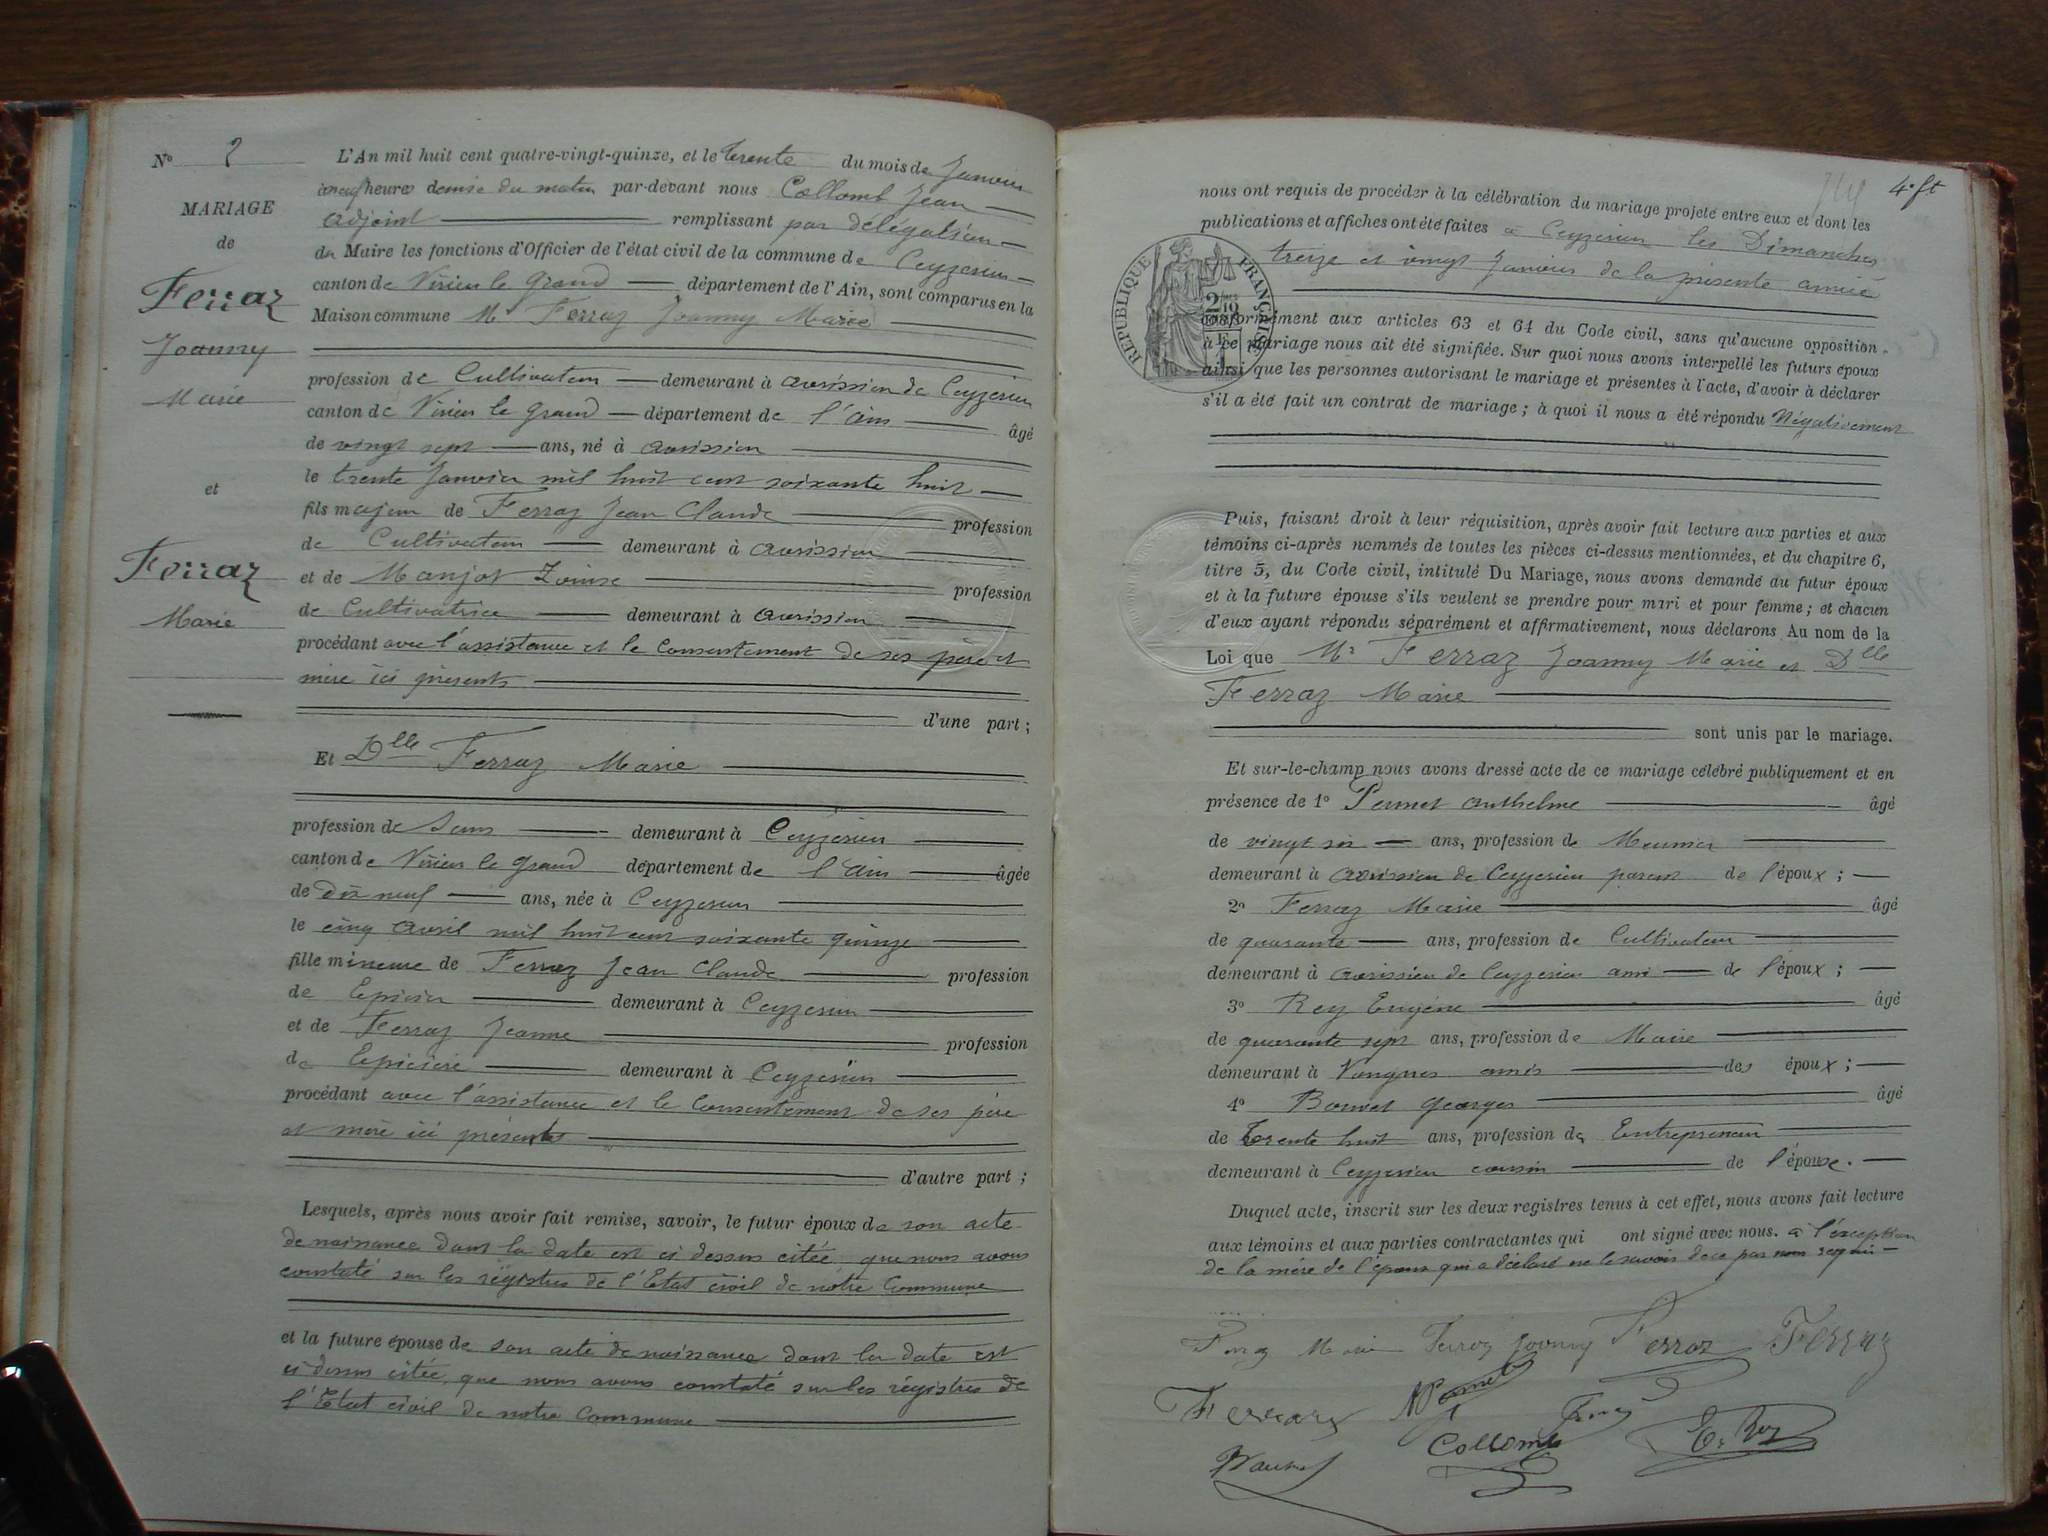 N° 2
MARIAGE
de
Ferraz
Joanny
Marie
et
Ferraz
Marie
L'An mil huit cent quatre-vingt-quinze, et le trente du mois de Janvier
à neuf heures demie du matin par-devant nous Collomb Jean
adjoint remplissant par délégation
du Maire les fonctions d'Officier de l'état civil de la commune de Ceyzerieu
canton de Virieu le Grand département de l'Ain, sont comparus en la
Maison commune Mr Ferraz Joanny Marie
profession de Cultivateur demeurant à Avrissieu de Ceyzerieu
canton de Virieu le Grand département de l'Ain âgé
de vingt sept ans, né à Avrissieu
le trente Janvier mil huit cent soixante huit
fils majeur de Ferraz Jean Claude profession
de Cultivateur demeurant à Avrissieu
et de Manjot Louise profession
de Cultivatrice demeurant à Avrissieu
procédant avec l'assistance et le consentement de ses père et
mère ici présents
d'une part ;
Et Dlle Ferraz Marie
profession de Sans demeurant à Ceyzérieu
canton de Virieu le Grand département de l'Ain âgée
de Dix neuf ans, née à Ceyzerieu
le cinq Avril mil huit cent soixante quinze
fille mineure de Ferraz Jean Claude profession
de Epicier demeurant à Ceyzerieu
et de Ferraz Jeanne profession
de Epicière demeurant à Ceyzerieu
procédant avec l'assistance et le consentement de ses père
et mère ici présents
d'autre part ;
Lesquels, après nous avoir fait remise, savoir, le futur époux de son acte
de naissance dont la date est ci dessus citée que nous avons
constaté sur les régistres de l'Etat civil de notre Commune
et la future épouse de son acte de naissance dont la date est
ci dessus citée, que nous avons constaté sur les régistres de
l'Etat civil de notre Commune
4e ft
nous ont requis de procéder à la célébration du mariage projeté entre eux et dont les
publications et affiches ont été faites à Ceyzerieu les Dimanches
treize et vingt Janvier de la présente année
RÉPUBLIQUE FRANÇAISE
conformément aux articles 63 et 64 du Code civil, sans qu'aucune opposition
à ce mariage nous ait été signifiée. Sur quoi nous avons interpellé les futurs époux
ainsi que les personnes autorisant le mariage et présentes à l'acte, d'avoir à déclarer
s'il a été fait un contrat de mariage ; à quoi il nous a été répondu Négativement
Puis, faisant droit à leur réquisition, après avoir fait lecture aux parties et aux
témoins ci-après nommés de toutes les pièces ci-dessus mentionnées, et du chapitre 6,
titre 5, du Code civil, intitulé Du Mariage, nous avons demandé au futur époux
et à la future épouse s'ils veulent se prendre pour mari et pour femme ; et chacun
d'eux ayant répondu séparément et affirmativement, nous déclarons Au nom de la
Loi que Mr Ferraz Joanny Marie et Dlle
Ferraz Marie
sont unis par le mariage.
Et sur-le-champ nous avons dressé acte de ce mariage célébré publiquement et en
présence de 1° Pernet Anthelme âgé
de vingt six ans, profession de Meunier
demeurant à Avrissieu de Ceyzerieu parent de l'époux ;
2° Ferraz Marie âgé
de quarante ans, profession de Cultivateur
demeurant à Avrissieu de Ceyzerieu ami de l'époux ;
3° Rey Eugène âgé
de quarante sept ans, profession de Maire
demeurant à Vongnes amis des époux ;
4° Bonnet Georges âgé
de Trente huit ans, profession de Entrepreneur
demeurant à Ceyzerieu cousin de l'épouse.
Duquel acte, inscrit sur les deux registres tenus à cet effet, nous avons fait lecture
aux témoins et aux parties contractantes qui ont signé avec nous. à l'exception
de la mère de l'époux qui a déclaré ne le savoir de ce par nous requis
Marie Ferraz Joanny Ferraz Ferraz
Ferraz
Collomb E. Rey